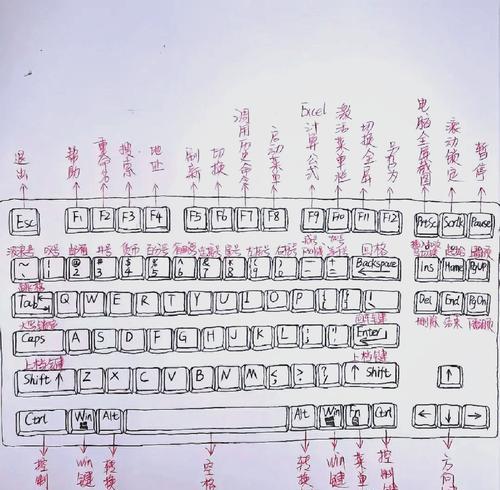 退出 帮助 重命名 搜索 地址 刷新 切换 调用历史命令 启动菜单 Excel计算公式 激活菜单栏 切换全屏 另存为 电脑全屏截图 滚动锁定 暂停
Esc F1 F2 F3 F4 F5 F6 F7 F8 F9 F10 F11 F12 PrtSc Scrlk Pause
波浪号 叹号 井号 货币 百分号 星号 左括号 右括号 退格
~ ! @ 2 # 3 $ 4 % 5 ^ 6 & 7 * 8 ( 9 ) 0 - + = Backspace Ins Home PgUp
Tab Q W E R T Y U I O P { [ } ] \ Del End PgDn
删除 结束
Caps A S D F G H J K L ; " Enter
上档键 上档键
Shift ↑ Z X C V B N M < > ? ↑ Shift ↑
Ctrl Win Alt Alt Win Fn Ctrl ← ↓ →
控制 win键 转换 空格 转换 win键 菜单 控制键 方向